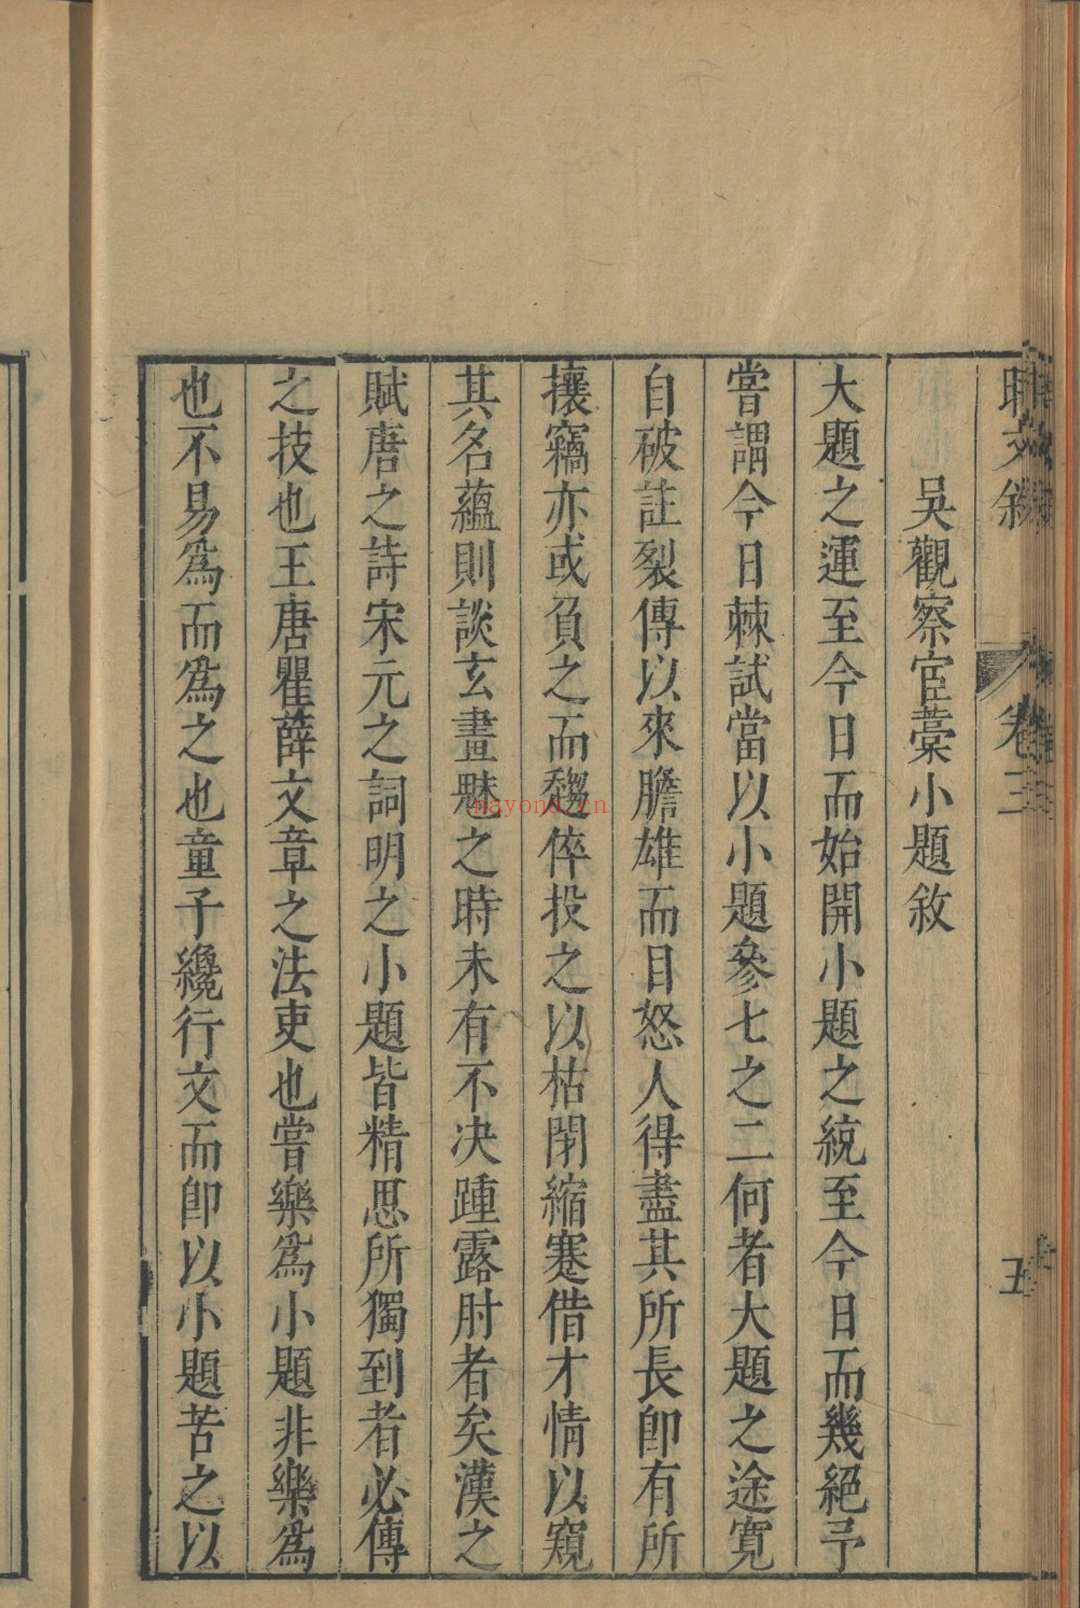 時文敘 卷三 五
吳觀察宦藁小題敘
大題之運至今日而始開小題之統至今日而幾絕予
嘗謂今日棘試當以小題參七之二何者大題之途寬
自破註裂傳以來膽雄而目怒人得盡其所長卽有所
攘竊亦或負之而趨倅投之以枯閉縮蹇借才情以窺
其名蘊則談玄畫魅之時未有不决踵露肘者矣漢之
賦唐之詩宋元之詞明之小題皆精思所獨到者必傳
之技也王唐瞿薛文章之法吏也嘗樂爲小題非樂爲
也不易爲而爲之也童子纔行文而卽以小題苦之以
nayond.cn